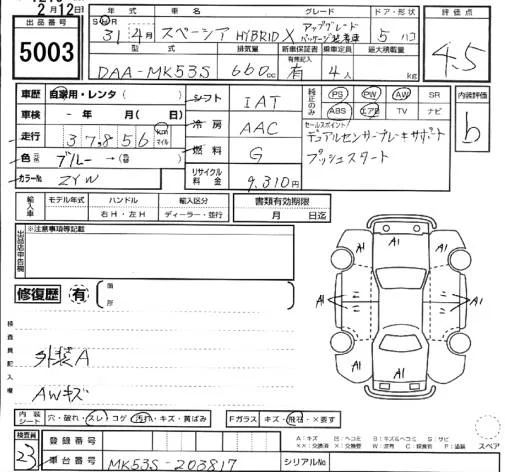 2月12日
出品番号
5003
年式 車名 グレード ドア・形状 評価点
S H R 31年4月 スペーシア HYBRID X アップグレードパッケージ装着車 5 ハコ 4.5
型式 排気量 新車保証書 乗車定員 最大積載量
有無記入
DAA-MK53S 660cc 有 4人 kg
車歴 自家用・レンタ( ) シフト IAT 純正のみ PS PW AW SR 内装評価
ABS エアB TV ナビ
車検 - 年 月( 日) 冷房 AAC セールスポイント/ b
走行 37,856 km マイル デュアルセンサーブレーキサポート
色 元色 ブルー → (替 ) 燃料 G プッシュスタート
カラーNo ZYW リサイクル料金 9,310円
輸入車 モデル年式 ハンドル 輸入区分 書類有効期限
右H・左H ディーラー・並行 月 日迄
出品店申告欄 ※注意事項等記載
修復歴 有 箇所
A1 A1 A1
A1 A1
A1 A1 A1
検査員記入欄
外装A
AWキズ
内装シート 穴・破れ・スレ・コゲ・汚れ・キズ・黄ばみ Fガラス キズ・飛石・×要す
検査員 登録番号
23 車台番号 MK53S-203817 シリアルNo
A:キズ B:キズ&ヘコミ S:サビ
××:交換済 ×:交換要 スペア